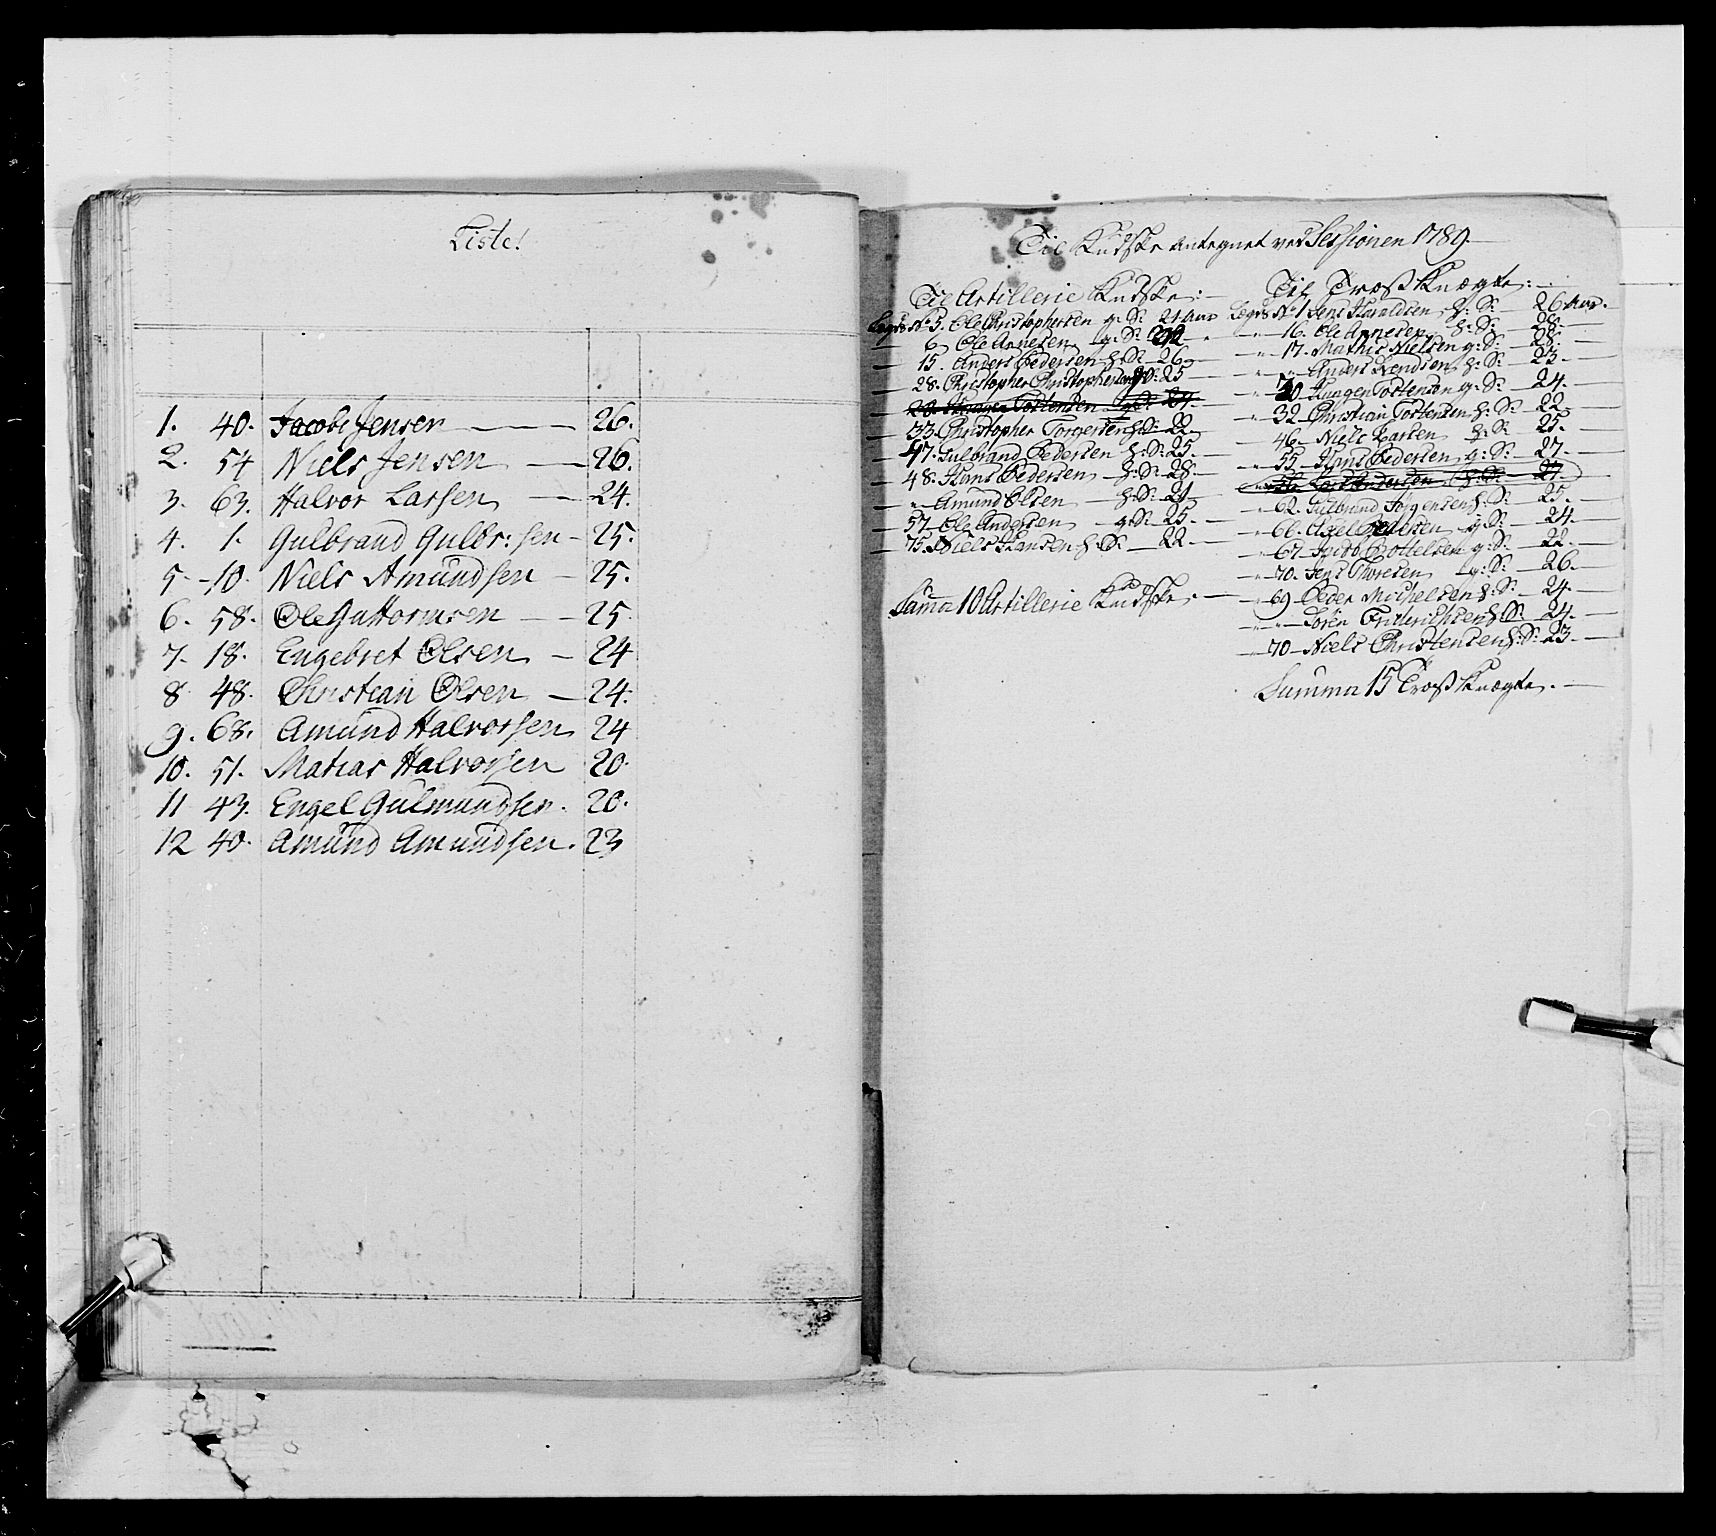 Liste!
1. 40. Jacob Jensen 26.
2. 54 Niels Jensen 26.
3. 63. Halvor Larsen 24.
4. 1. Gulbrand Gulbr:sen 25.
5. 10. Niels Amundsen 25.
6. 58. Ole Guttormsen 25.
7. 18. Engebret Olsen 24
8. 48. Christian Olsen 24.
9. 68. Amund Halvorsen 24
10. 51. Matias Halvorsen 20.
11 43. Engel Gulmundsen. 20.
12 40. Amund Amundsen. 23
Til Kudske antegnet ved Sessionen 1789
Til Artillerie Kudske:
Legds No 5. Ole Christophersen g: S: 21 Aar
6 Ole Annesen g: S: 22
15. Anders Pedersen h: S: 26
28. Christopher Christophersen h: S: 25
28. Haagen Tostensen g: S: 24
33. Christopher Torgersen h: S: 22
47. Gulbrand Pedersen h: S: 25
48. Hans Pedersen h: S: 28
" Amund Olsen h: S: 21
57. Ole Andersen g: S: 25
75. Niels Hansen h: S: 22
Summa 10 Artillerie Kudske.
Til Trossknægte:
Legds No 1 Jens Haraldsen h: S: 26 Aar.
16. Ole Annesen h: S: 28.
17. Mathis Nielsen g: S: 28.
" Anders Svendsen h: S: 23
20. Haagen Tostensen g: S: 24.
32. Christian Tostensen h: S: 22
46. Niels Larsen h: S: 25.
55. Hans Pedersen g: S: 27.
Lars Andersen h: S: 27.
62. Gulbrand Jörgensen h: S: 25.
66. Axel Pedersen g: S: 24.
67. Jacob Bottelsen g: S: 22.
70. Jens Thoresen g: S: 26.
69. Peder Michelsen h: S: 24.
" Sören Friderichsen h: S: 24.
70. Niels Christensen h: S: 23.
Summa 15 Trossknægte.